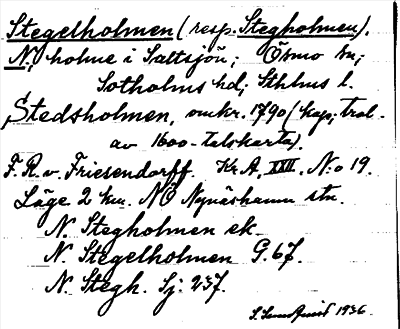 Stegelholmen (resp. Stegholmen).
N., holme i Saltsjön; Ösmo sn;
Sotholms hd; Sthlms l.
Stedsholmen, omkr. 1790 (kop; trol.
av 1600-talskarta).
F. R. v. Friesendorff. Kr. A, XXII, N:o 19.
Läge 2 km. NÖ Nynäshamn stn.
N. Stegholmen ek.
N. Stegelholmen G. 67.
N. Stegh. Sj. 237.
1936.